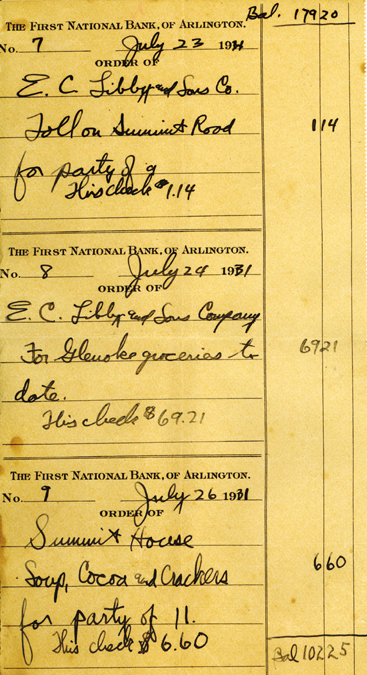 Bal. 17920
THE FIRST NATIONAL BANK, OF ARLINGTON.
No. 7 July 23 1931
ORDER OF
E. C. Libby and Sons Co.
Toll on Summit Road 114
for party of 9
This check $1.14
THE FIRST NATIONAL BANK, OF ARLINGTON.
No. 8 July 24 1931
ORDER OF
E. C. Libby and Sons Company
For Glenoke groceries to 6921
date.
This check $69.21
THE FIRST NATIONAL BANK, OF ARLINGTON.
No. 9 July 26 1931
ORDER OF
Summit House
Soup, Cocoa and Crackers 660
for party of 11.
This check $6.60
Bal 10225